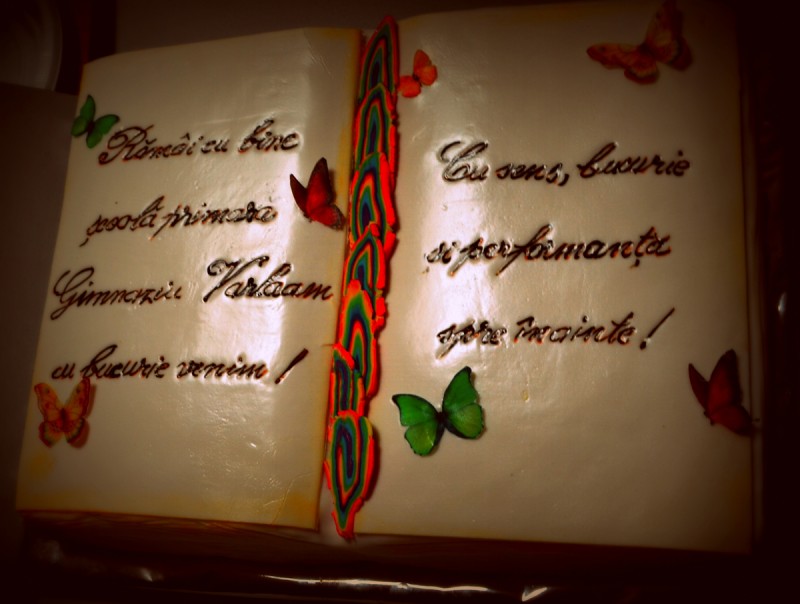 Rămâi cu bine
școală primară
Gimnaziu Varlaam
cu bucurie venim!
Cu sens, bucurie
și performanța
spre înainte!